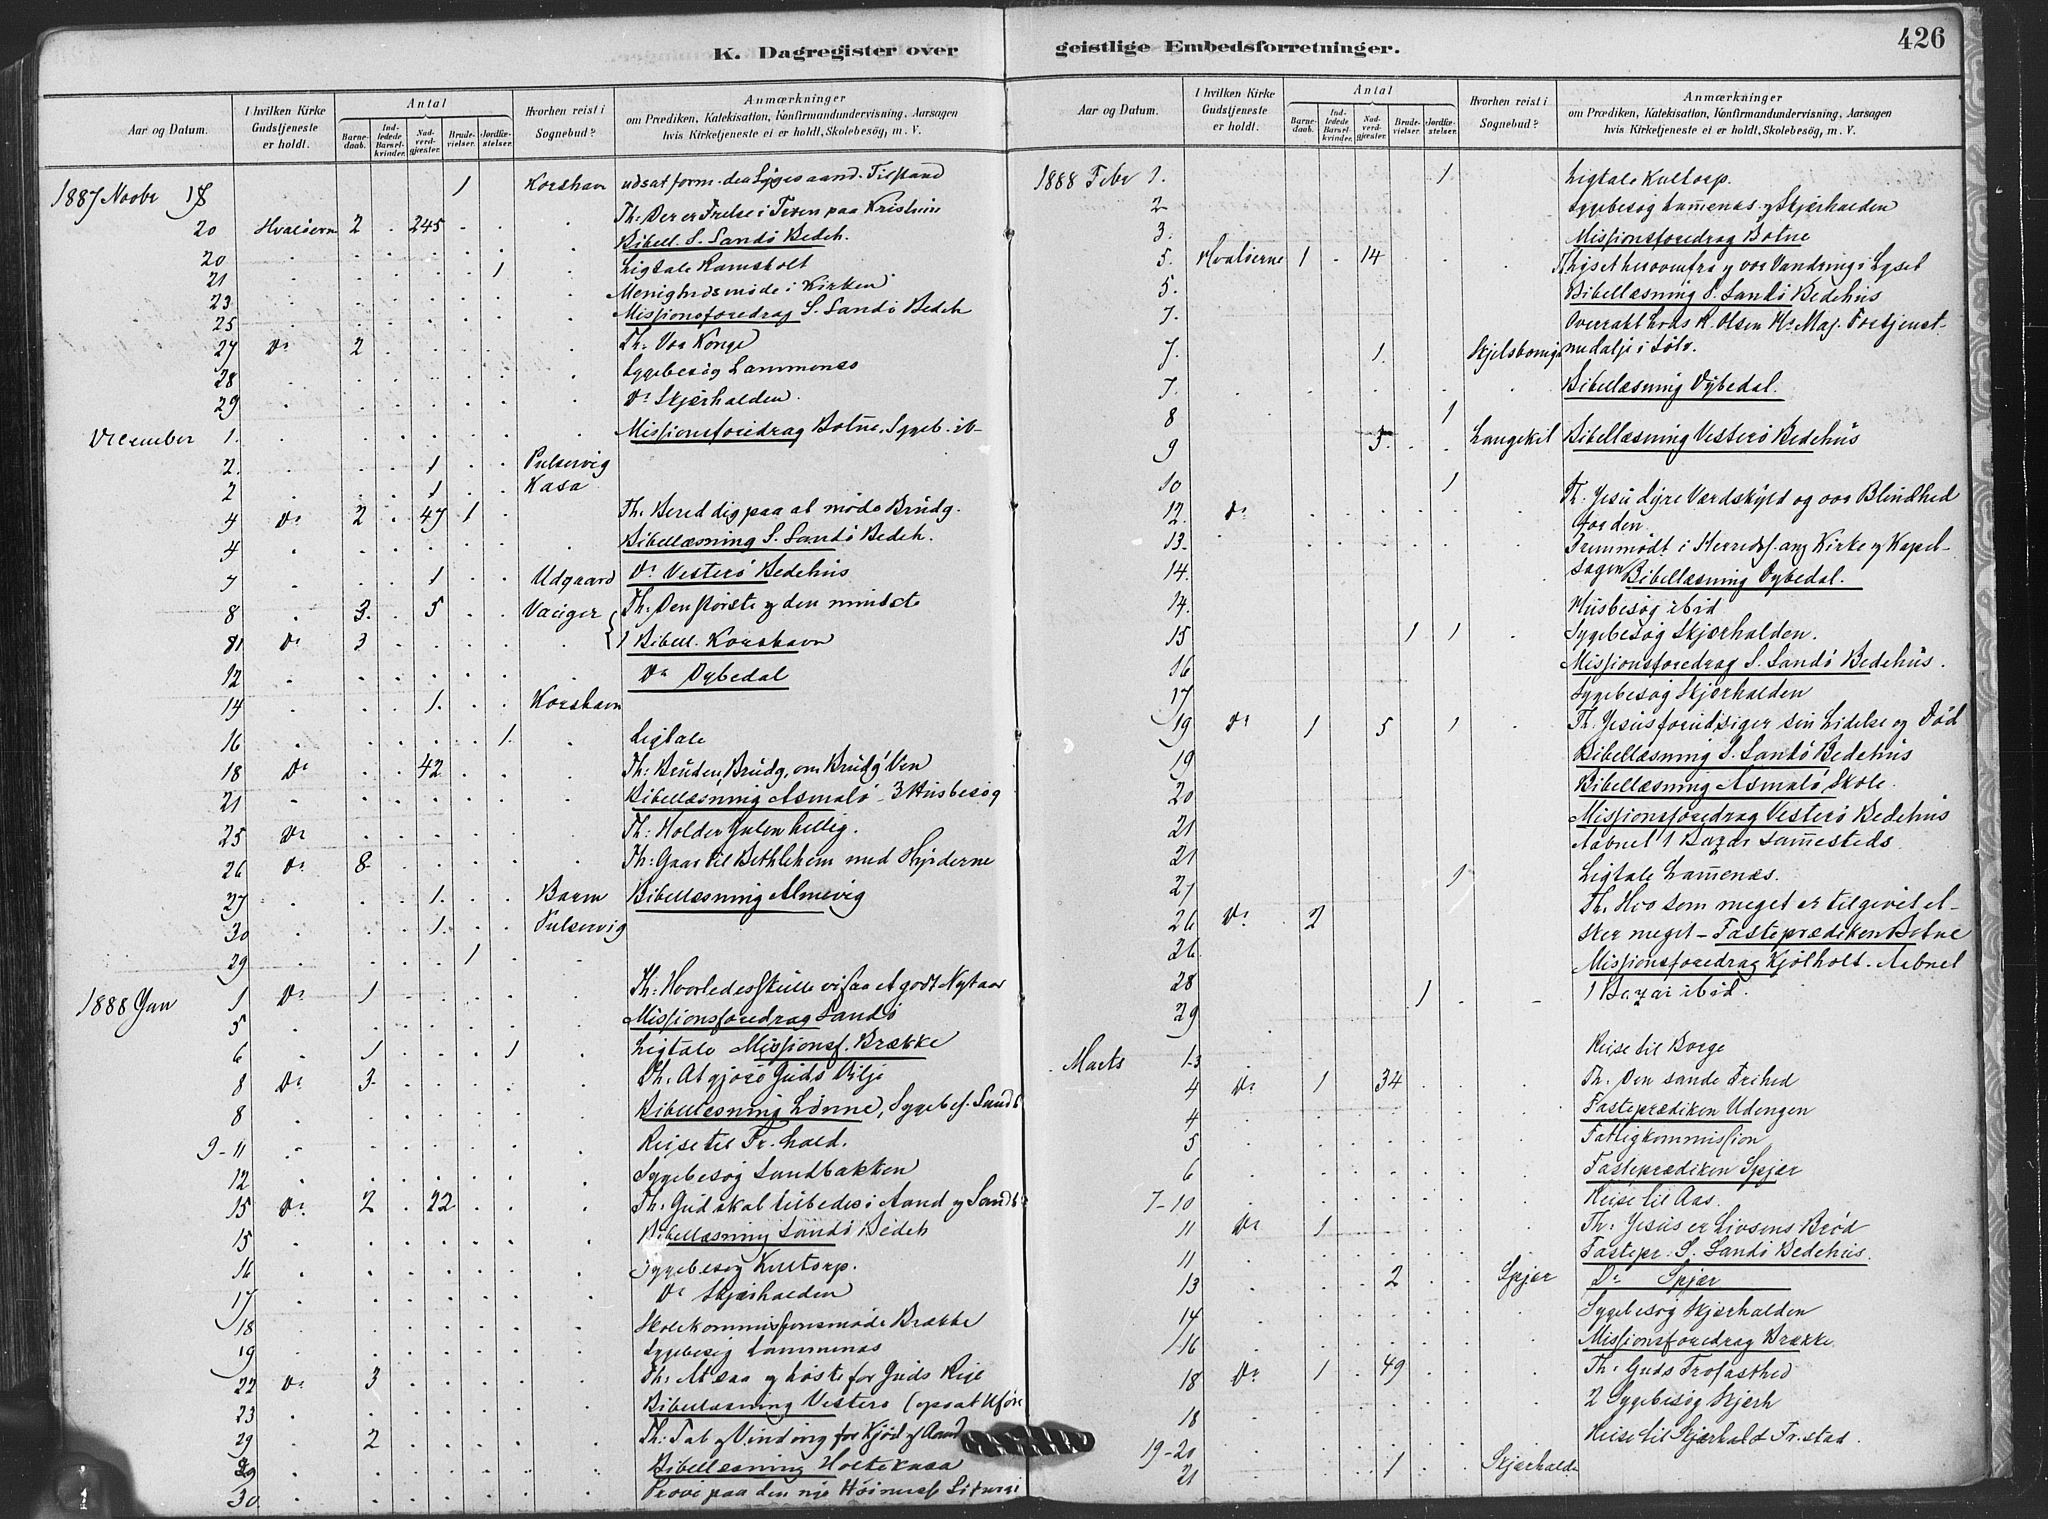 K. Dagregister over
geistlige Embedsforretninger.
426
Aar og Datum.
I hvilken Kirke Gudstjeneste er holdt.
Antal
Barne-daab.
Ind-ledede Barsel-kvinder.
Nad-verd-gjester.
Brude-vielser.
Jordfæ-stelser.
Hvorhen reist i Sognebud?
Anmærkninger
om Prædiken, Katekisation, Konfirmandundervisning, Aarsagen
hvis Kirketjeneste ei er holdt, Skolebesøg, m. V.
1887 Novbr 18 . . . . 1 Korshavn udsat form. den Tilstand
20 Hvaløerne 2 . 245 . . . Th: Der er Frelse i Troen paa Kristum
20 . . . . . . Bibell. S. Sandö Bedeh.
21 . . . . . 1 . Ligtale Ramsholt
23 . . . . . . Menighedsmöde i Kirken
25 . . . . . . Missionsforedrag S. Sandö Bedeh
27 Do 2 . . . . . Th: Vor Konge
28 . . . . . . Sygebesög Lammenæs
29 . . . . . . Do Skjærhalden
December 1. . . . . . . Missionsforedrag Botne. Sygeb. ib-
2. . . . 1 . . Pulservig
2 . . . 1 . . Kasa
4 Do 2 . 47 1 . Th: Bered dig paa at möde Brudg.
4 . . . . . . Bibellæsning S. Sandö Bedeh.
7 . . . 1 . . Udgaard Do Vesterö Bedehus
8 . 3. . 5 . . Vauger Th: Den störste og den mindste
11 Do 3 . . . . . 1 Bibell. Korshavn
12 . . . . . . Do Dybedal
14 . . . 1. . . Korshavn
16 . . . . . 1. . Ligtale
18 Do . . 42 . . . Th: Bruden, Brudg, om Brudg Ven
21 . . . . . . Bibellæsning Asmalö - 3 Husbesög
25 Do . . . . . . Th: Holder Julen hellig.
26 Do 8 . . . . . Th: Gaar til Bethlehem med Hyrderne
27 . . . 1. . . Barm Bibellæsning Almevig
30 . . . 1. . . Pulservig
29 . . . . 1 . .
1888 Jan 1 Do 1 . . . . . Th: Hvorledes skulle vi faa et godt Nytaar
5 . . . . . . Missionsforedrag Sandö
6 . 1 . . . 1 . Ligtale Missionsf. Brække
8 Do 3 . . . . . Th. At gjöre Guds Vilje
8 . . . . . . Bibellæsning Lönne, Sygebes. Sandb
9-11 . . . . . . Reise til Fr. hald.
12 . . . . . . Sygebesög Sandbakken
15 Do 2 . 22 . . . Th: Gud skal tilbedes i Aand og Sandh
15 . . . . . . Bibellæsning Sandö Bedeh
16 . . . . . . Sygebesög Kultorp.
17 . . . . . . Do Skjærhalden
18 . . . . . . Skolekommissionsmöde Brække
19 . . . . . . Sygebesög Lammenæs
22 Do 3 . . . . . Th: At saa og höste for Guds Rige
23 . . . . . . Bibellæsning Vesterö (opsat Uföre
29 . 2 . . . . . Th: Tab og Vinding for Kjöd og Aand
29 . . . . . . Bibellæsning Holtekasa
30 . . . . . . Pröve paa den nye Höimesse Liturgi
Aar og Datum.
I hvilken Kirke Gudstjeneste er holdt.
Antal
Barne-daab.
Ind-ledede Barsel-kvinder.
Nad-verd-gjester.
Brude-vielser.
Jordfæ-stelser.
Hvorhen reist i Sognebud?
Anmærkninger
om Prædiken, Katekisation, Konfirmandundervisning, Aarsagen
hvis Kirketjeneste ei er holdt, Skolebesøg, m. V.
1888 Febr 1. 1 Ligtale Kultorp.
2 Sygebesög Lammenæs og Skjærhalden
3. Missionsforedrag Botne
5. Hvaløerne 1 . 14 Th Lyset herovenfra og vor Vandring i Lyset
5. Bibellæsning S. Sandö Bedehus
7. Overrakt Lods R. Olsen Hs. Maj. Fortjenst-
7. 1. Skjelsboveig medalje i Sölv.
7. Bibellæsning Dybedal.
8 1
9 3 . . Langekil Bibellæsning Vesterö Bedehus
10 1
12. Do Th. Jesu dyre Værdskyld og vor Blindhed
for den.
13. Fremmödt i Herredsf. ang Kirke og Kapel-
14. sagen Bibellæsning Dybedal.
14. Husbesög ibid
15 1 1 . Sygebesög Skjærhalden.
16 Missionsforedrag S. Sandö Bedehus.
17 Sygebesög Skjærhalden
19 Do 1 5 . 1 . Th. Jesus forudsiger sin Lidelse og Död
19 Bibellæsning S. Sandö Bedehus
20 Bibellæsning Asmalö Skole.
21 Missionsforedrag Vesterö Bedehus
21 Aabnet 1 Bazar sammesteds.
27 1 Ligtale Lammenæs.
26 Do 2 Th. Hvo som meget er tilgivet el-
26. sker meget - Fasteprædiken Botne
28 Missionsforedrag Kjölholt. Aabnet
29 1 1 Bazar ibid.
Marts 1-3 Reise til Borge
4 Do 1 34 Th. Den sande Frihed
4 Fasteprædiken Udengen
5 Fattigkommission
6 Fasteprædiken Spjær
7-10 Reise til Aas.
11 Do 1 Th: Jesus er Livsens Bröd
11 Fastepr. S. Sandö Bedehus.
13 2 . . Spjær Do Spjær
14 Sygebesög Skjærhalden
16 Missionsforedrag Brække
18 Do 1 49 Th: Guds Trofasthed
18 2 Sygebesög Skjærh
19-20 Reise til Skjærhald Fr. stad.
21 1 Skjærhalde